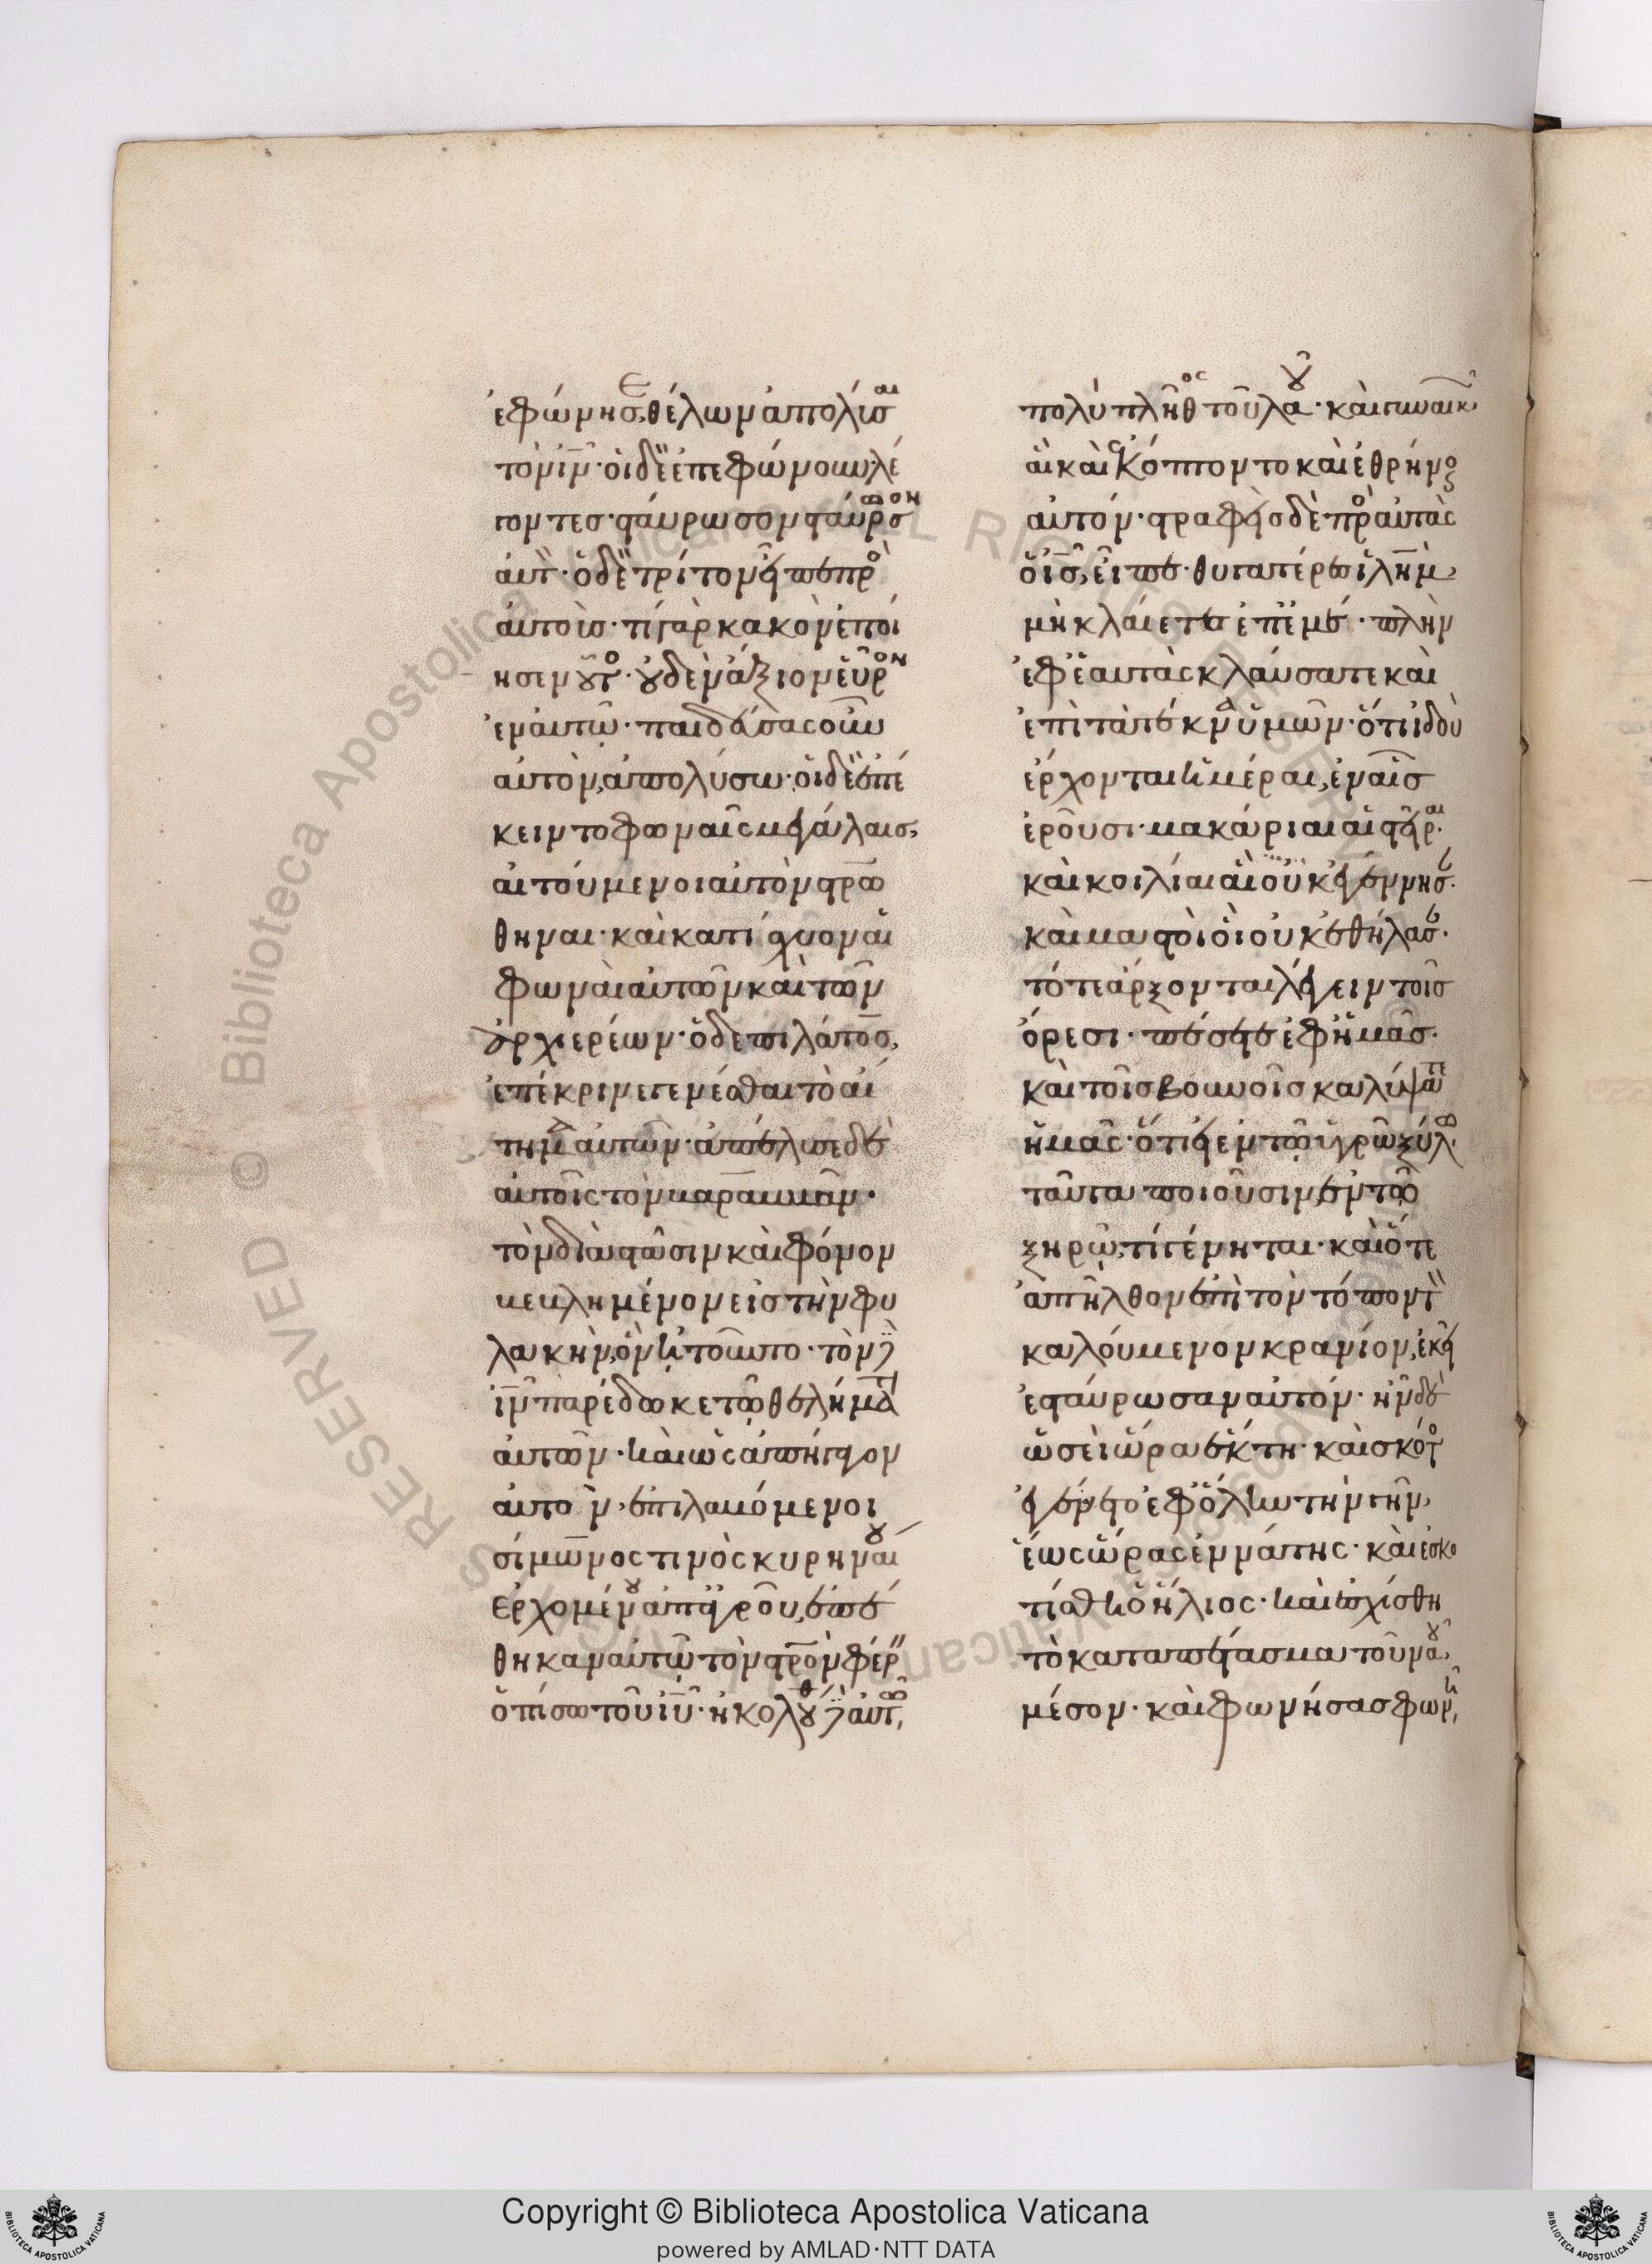 ἐφώνησε, θέλων ἀπολῦσαι
τὸν ιν̅· οἱ δὲ ἐπεφώνουν λέ
γοντες· σταύρωσον σταύρωσον
αὐτ· ὁ δὲ τρίτον εἶπε πρὸ
αὐτοὺσ· τί γὰρ κακὸν ἐποί
ησεν οὗτο· οὐδὲν ἄξιον εὗρον
ἐν αὐτῶ· παιδεύσας οὖν
αὐτὸν, ἀπολύσω· οἱ δὲ ἐπέ
κειντο φωναῖς μεγάλαισ,
αἰτούμενοι αὐτὸν στρω
θηναι· καὶ κατίσχυον αἱ
φωναὶ αὐτῶν καὶ τῶν
ἀρχιερέων· ὁ δε πιλάτοσ,
ἐπέκρινε γενέσθαι τὸ αἴ
τημα αὐτῶν· ἀπέλυσε δὲ
αὐτοῖς τὸν βαραββᾶν·
τὸν διὰ στάσιν καὶ φόνον
βεβλημένον εἰσ τὴν φυ
λακὴν, ὃν ἠτοῦντο· τὸν δὲ
ιν̅ παρέδωκε τῶ θελήματι
αὐτῶν· καὶ ὡς ἀπήγαγον
αὐτὸν, ἐπιλαβόμενοι
σίμωνος τινὸς κυρηναίου
ἐρχομένου ἀπ' ἀγροῦ, ἐπέ
θηκαν αὐτῶ τὸν στρον φέρειν
ὄπισω τοῦ ιυ̅· ἠκολούθει δὲ αὐτῶ,
πολὺ πλῆθος τοῦ λαοῦ· καὶ γυναικῶν,
αἳ καὶ ἐκόπτοντο καὶ ἐθρήνουν
αὐτόν· στραφεὶσ δὲ πρὸ αὐτὰς
ὁ ισ̅, εἶπε· θυγατέρεσ ιλημ̅,
μὴ κλαίετε ἐπ' ἐμέ· πλὴν
ἐφ' ἑαυτὰς κλαύσατε καὶ
ἐπὶ τὰ τέκνα ὑμῶν· ὅτι ἰδοὺ
ἔρχονται ἡμέραι, ἐν αἷσ
ἐροῦσι· μακάριαι αἱ στεῖραι·
καὶ κοιλίαι αἳ οὐκ ἐγέννησ·
καὶ μαστοὶ οἳ οὐκ ἐθήλασ·
τότε ἄρξονται λέγειν τοῖσ
ὄρεσι· πέσετε ἐφ' ἡμᾶσ·
καὶ τοῖσ βουνοῖσ καλύψατε
ἡμᾶς· ὅτι εἰ ἐν τῶ ὑγρῶ ξύλω
ταῦτα ποιοῦσιν, ἐν τῶ
ξηρῶ, τί γένηται· καὶ ὅτε
ἀπῆλθον ἐπὶ τὸν τόπον τὸν
καλούμενον κρανίον, ἐκεῖ
ἐσταύρωσαν αὐτόν· ἦν δὲ
ὡσεὶ ὥρα ἕκτη· καὶ σκότο
ἐγένετο ἐφ' ὅλην τὴν γῆν,
ἕως ὥρας ἐννάτης· καὶ ἐσκο
τίσθη ὁ ἥλιος· καὶ ἐσχίσθη
τὸ καταπέτασμα τοῦ ναοῦ,
μέσον· καὶ φωνήσασ φωνῆ,
Copyright © Biblioteca Apostolica Vaticana
powered by AMLAD·NTT DATA